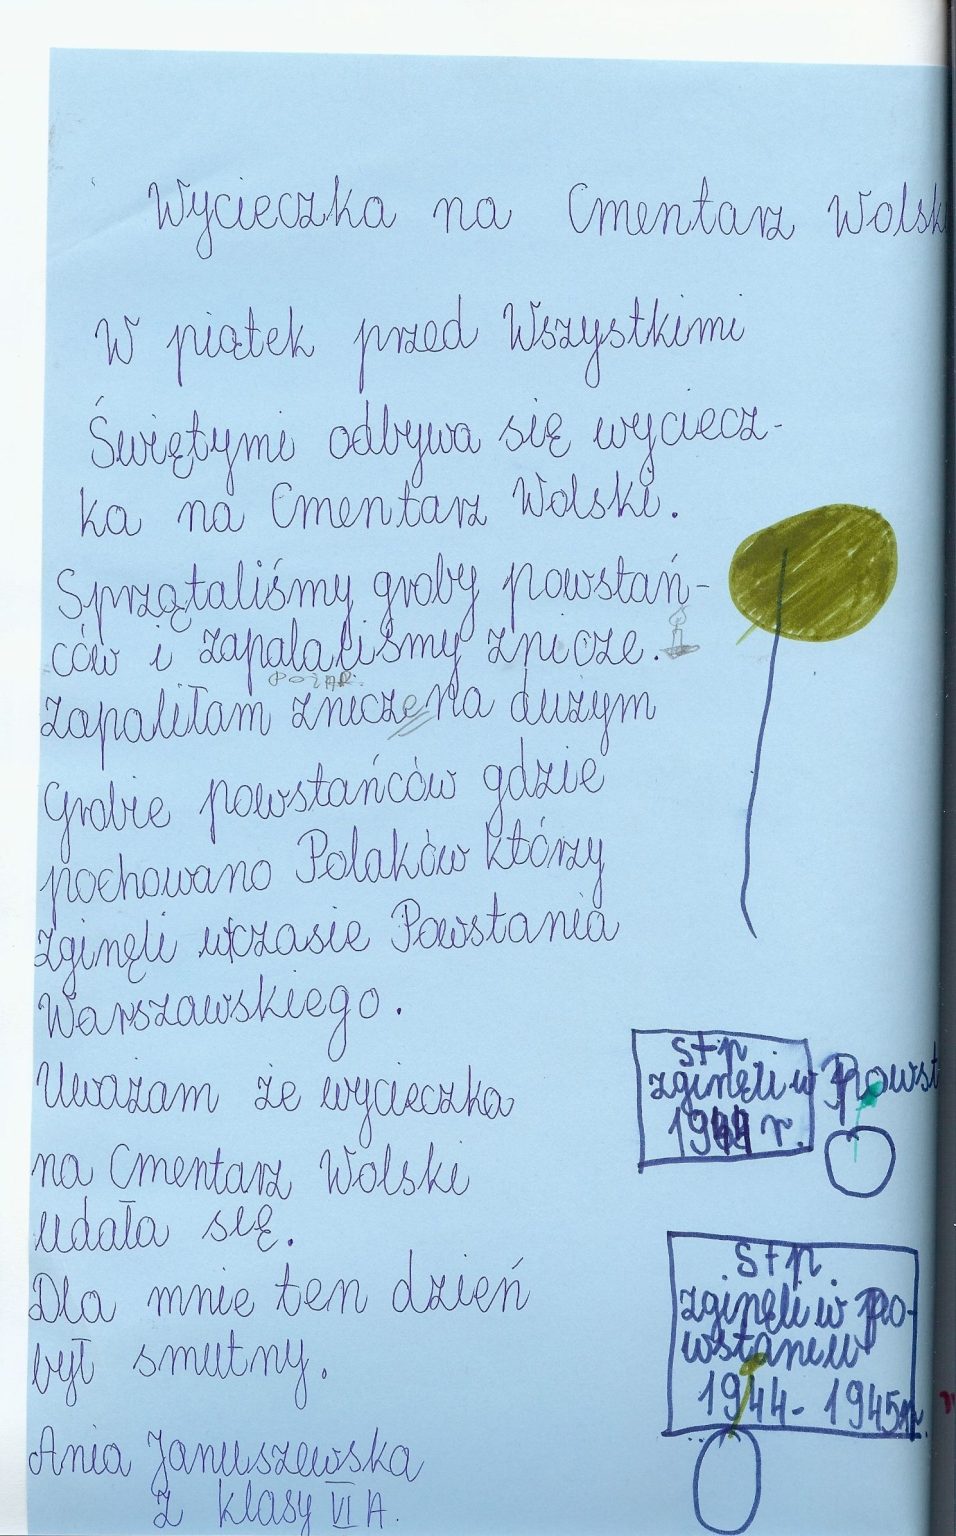 Wycieczka na Cmentarz Wolsk
W piątek przed Wszystkimi
Świętymi odbywa się wyciecz-
ka na Cmentarz Wolski.
Sprzątaliśmy groby powstań-
ców i zapalaliśmy znicze.
Zapaliłam znicze na dużym
Grobie powstańców gdzie
pochowano Polaków którzy
zginęli wczasie Powstania
Warszawskiego.
Uważam że wycieczka
na Cmentarz Wolski
udała się.
Dla mnie ten dzień
był smutny.
Ania Januszewska
z klasy VI A.
ś+p
zginęli w Powst
1944 r.
ś+p.
zginęli w Po-
wstaniu
1944-1945r.